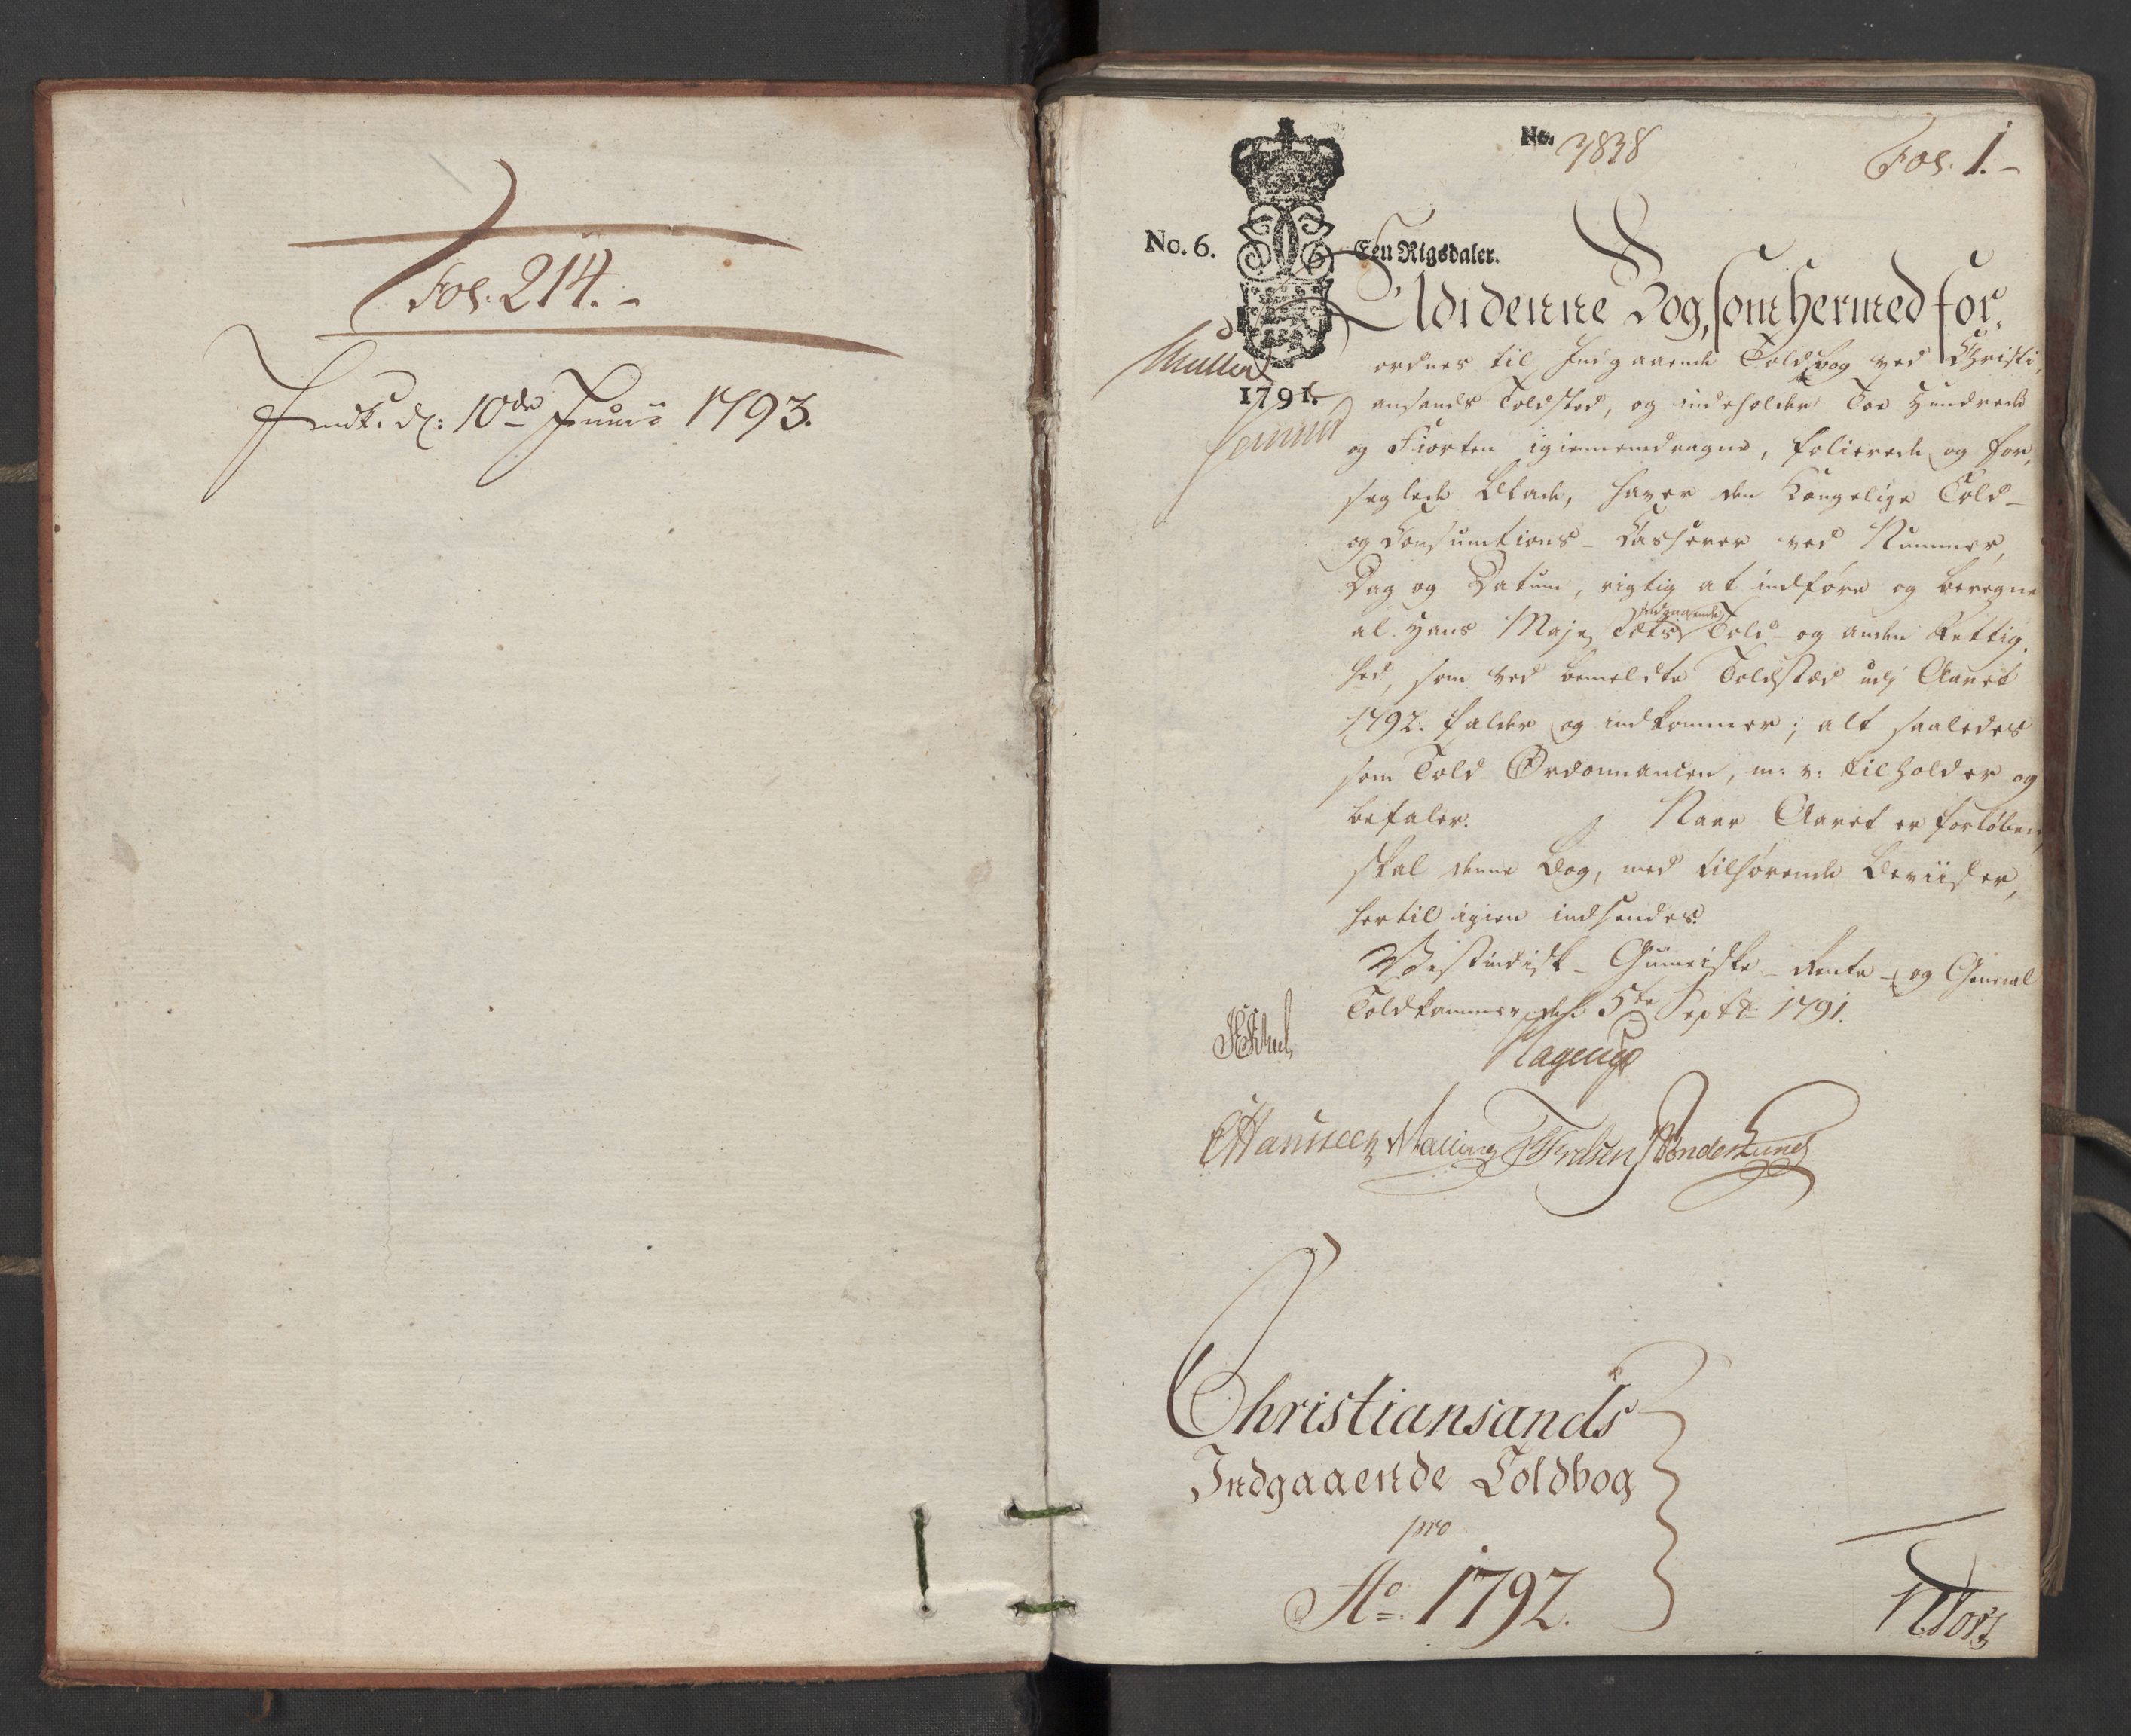 Fol: 214.-
Indk. d: 10de Junii 1793.
No. 3838
Fol. 1.-
No. 6.
Een Rigsdaler.
1791.
Müller
Udi denne Bog, som hermed for-
ordnes til Indgaaende Toldbog ved Christi-
ansands Toldsted, og indeholder Toe Hundrede
og Fiorten igiennemdragne, folierede og for-
seglede Blade, haver den Kongelige Told-
og Consumtions-Casserer ved Nummer,
Dag og Datum, rigtig at indføre og beregne
al Hans Majestæts indgaaende Told- og anden Rettig-
hed, som ved bemeldte Toldsted udj Aaret
1792. falder og indkommer; alt saaledes
som Told-Ordonnancen, m: v: tilholder og
befaler. Naar Aaret er forløben,
skal denne Bog, med tilhørende Beviiser,
hertil igien indsendes.
Vestindisk-Guineiske-Rente- og General
Toldkammer, den 5te Septbr 1791.
Hagerup
Malling
Christiansands
Indgaaende Toldbog
pro
Ao. 1792.